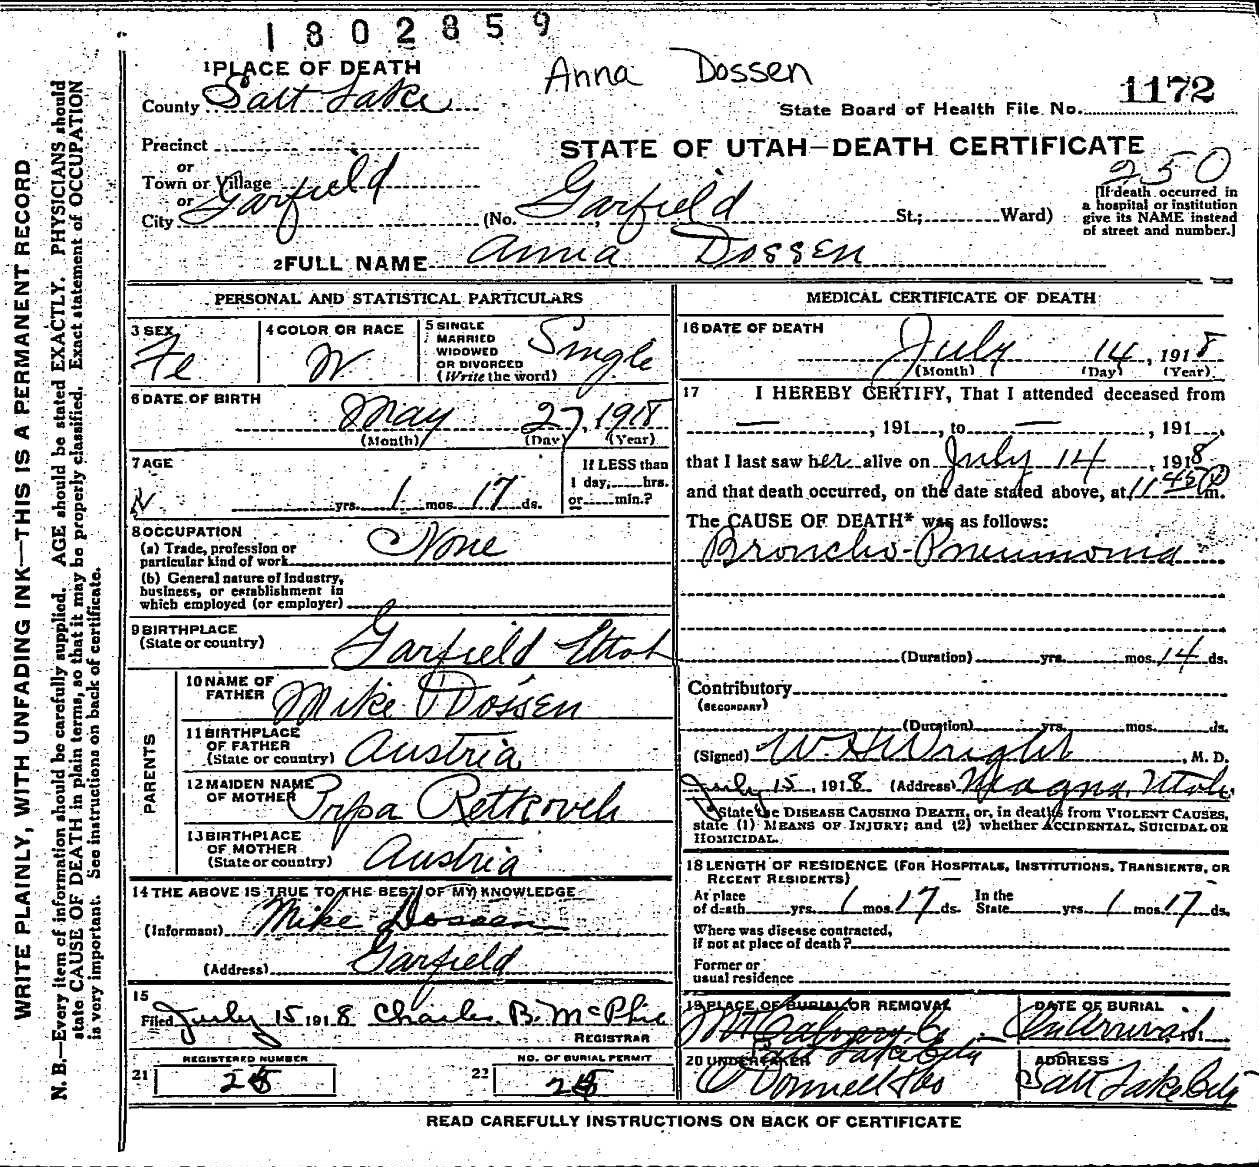 1802859
Anna Dossen
1 PLACE OF DEATH
County Salt Lake
State Board of Health File No. 1172
Precinct
STATE OF UTAH—DEATH CERTIFICATE
250
or
Town or Village Garfield
or
City Garfield (No. Garfield St.; Ward)
[If death occurred in
a hospital or institution
give its NAME instead
of street and number.]
2 FULL NAME Anna Dossen
PERSONAL AND STATISTICAL PARTICULARS
3 SEX Fe
4 COLOR OR RACE W
5 SINGLE
MARRIED
WIDOWED
OR DIVORCED
(Write the word) Single
6 DATE OF BIRTH
May 27, 1918
(Month) (Day) (Year)
7 AGE
yrs. 1 mos. 17 ds.
If LESS than
1 day, hrs.
or min.?
8 OCCUPATION
(a) Trade, profession or
particular kind of work None
(b) General nature of Industry,
business, or establishment in
which employed (or employer)
9 BIRTHPLACE
(State or country) Garfield Utah
PARENTS
10 NAME OF
FATHER Mike Dossen
11 BIRTHPLACE
OF FATHER
(State or country) Austria
12 MAIDEN NAME
OF MOTHER
13 BIRTHPLACE
OF MOTHER
(State or country) Austria
14 THE ABOVE IS TRUE TO THE BEST OF MY KNOWLEDGE
(Informant) Mike Dossen
(Address) Garfield
15
Filed July 15 1918 Charles B. McPhie
REGISTRAR
REGISTERED NUMBER
21
NO. OF BURIAL PERMIT
22
MEDICAL CERTIFICATE OF DEATH
16 DATE OF DEATH
July 14, 1918
(Month) (Day) (Year)
17 I HEREBY CERTIFY, That I attended deceased from
— , 191 , to — , 191 ,
that I last saw her alive on July 14, 1918
and that death occurred, on the date stated above, at 11 45 P m.
The CAUSE OF DEATH* was as follows:
Broncho-Pneumonia
(Duration) yrs. mos. 14 ds.
Contributory
(SECONDARY)
(Duration) yrs. mos. ds.
(Signed) W. H. Wright, M. D.
July 15, 1918 (Address) Magna, Utah
*State the DISEASE CAUSING DEATH, or, in deaths from VIOLENT CAUSES,
state (1) MEANS OF INJURY; and (2) whether ACCIDENTAL, SUICIDAL OR
HOMICIDAL.
18 LENGTH OF RESIDENCE (FOR HOSPITALS, INSTITUTIONS, TRANSIENTS, OR
RECENT RESIDENTS)
At place
of death yrs. 1 mos. 17 ds. In the
State yrs. 1 mos. 17 ds.
Where was disease contracted,
if not at place of death?
Former or
usual residence
19 PLACE OF BURIAL OR REMOVAL
Mt Calvary
Salt Lake City
DATE OF BURIAL
191
20 UNDERTAKER
O'Donnell & Co
ADDRESS
Salt Lake City
READ CAREFULLY INSTRUCTIONS ON BACK OF CERTIFICATE
WRITE PLAINLY, WITH UNFADING INK—THIS IS A PERMANENT RECORD
N. B.—Every item of information should be carefully supplied. AGE should be stated EXACTLY. PHYSICIANS should
state CAUSE OF DEATH in plain terms, so that it may be properly classified. Exact statement of OCCUPATION
is very important. See instructions on back of certificate.